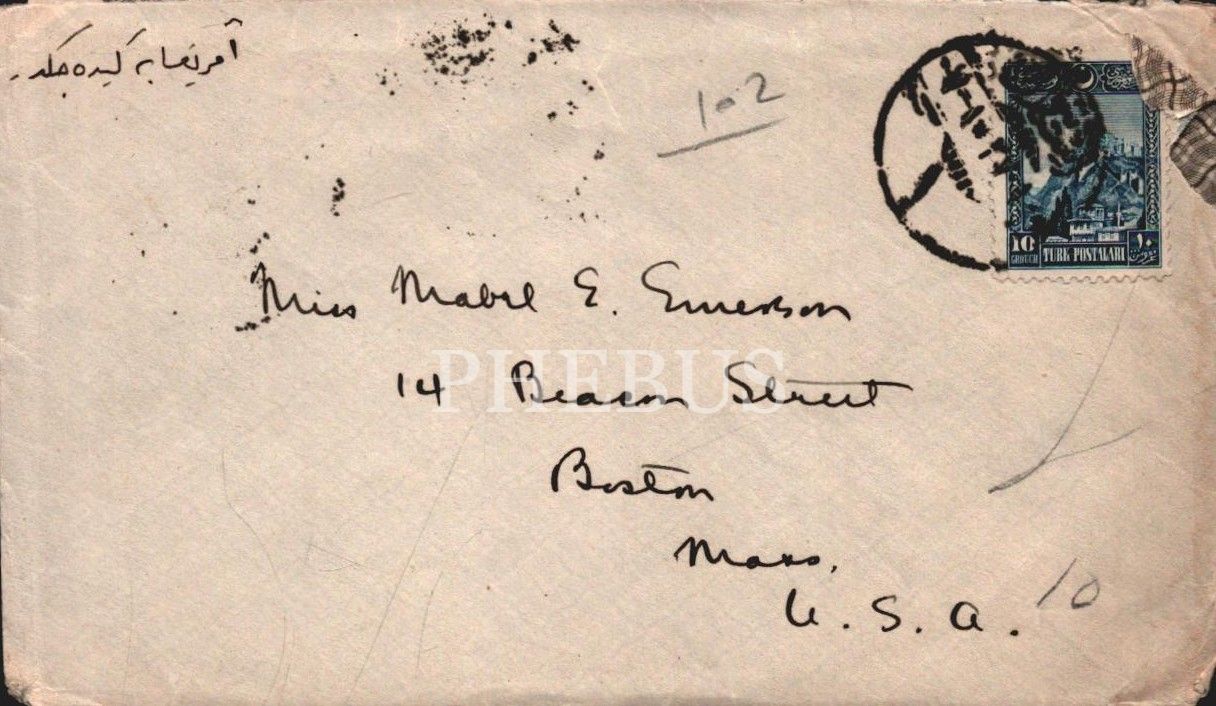 آمریقایه کیده جکدر
102
10
GROUCH
TURK POSTALARI
١٠
غروش
Miss Mabel E. Emerson
14 Beacon Street
PHEBUS
Boston
Mass.
U. S. A.
10